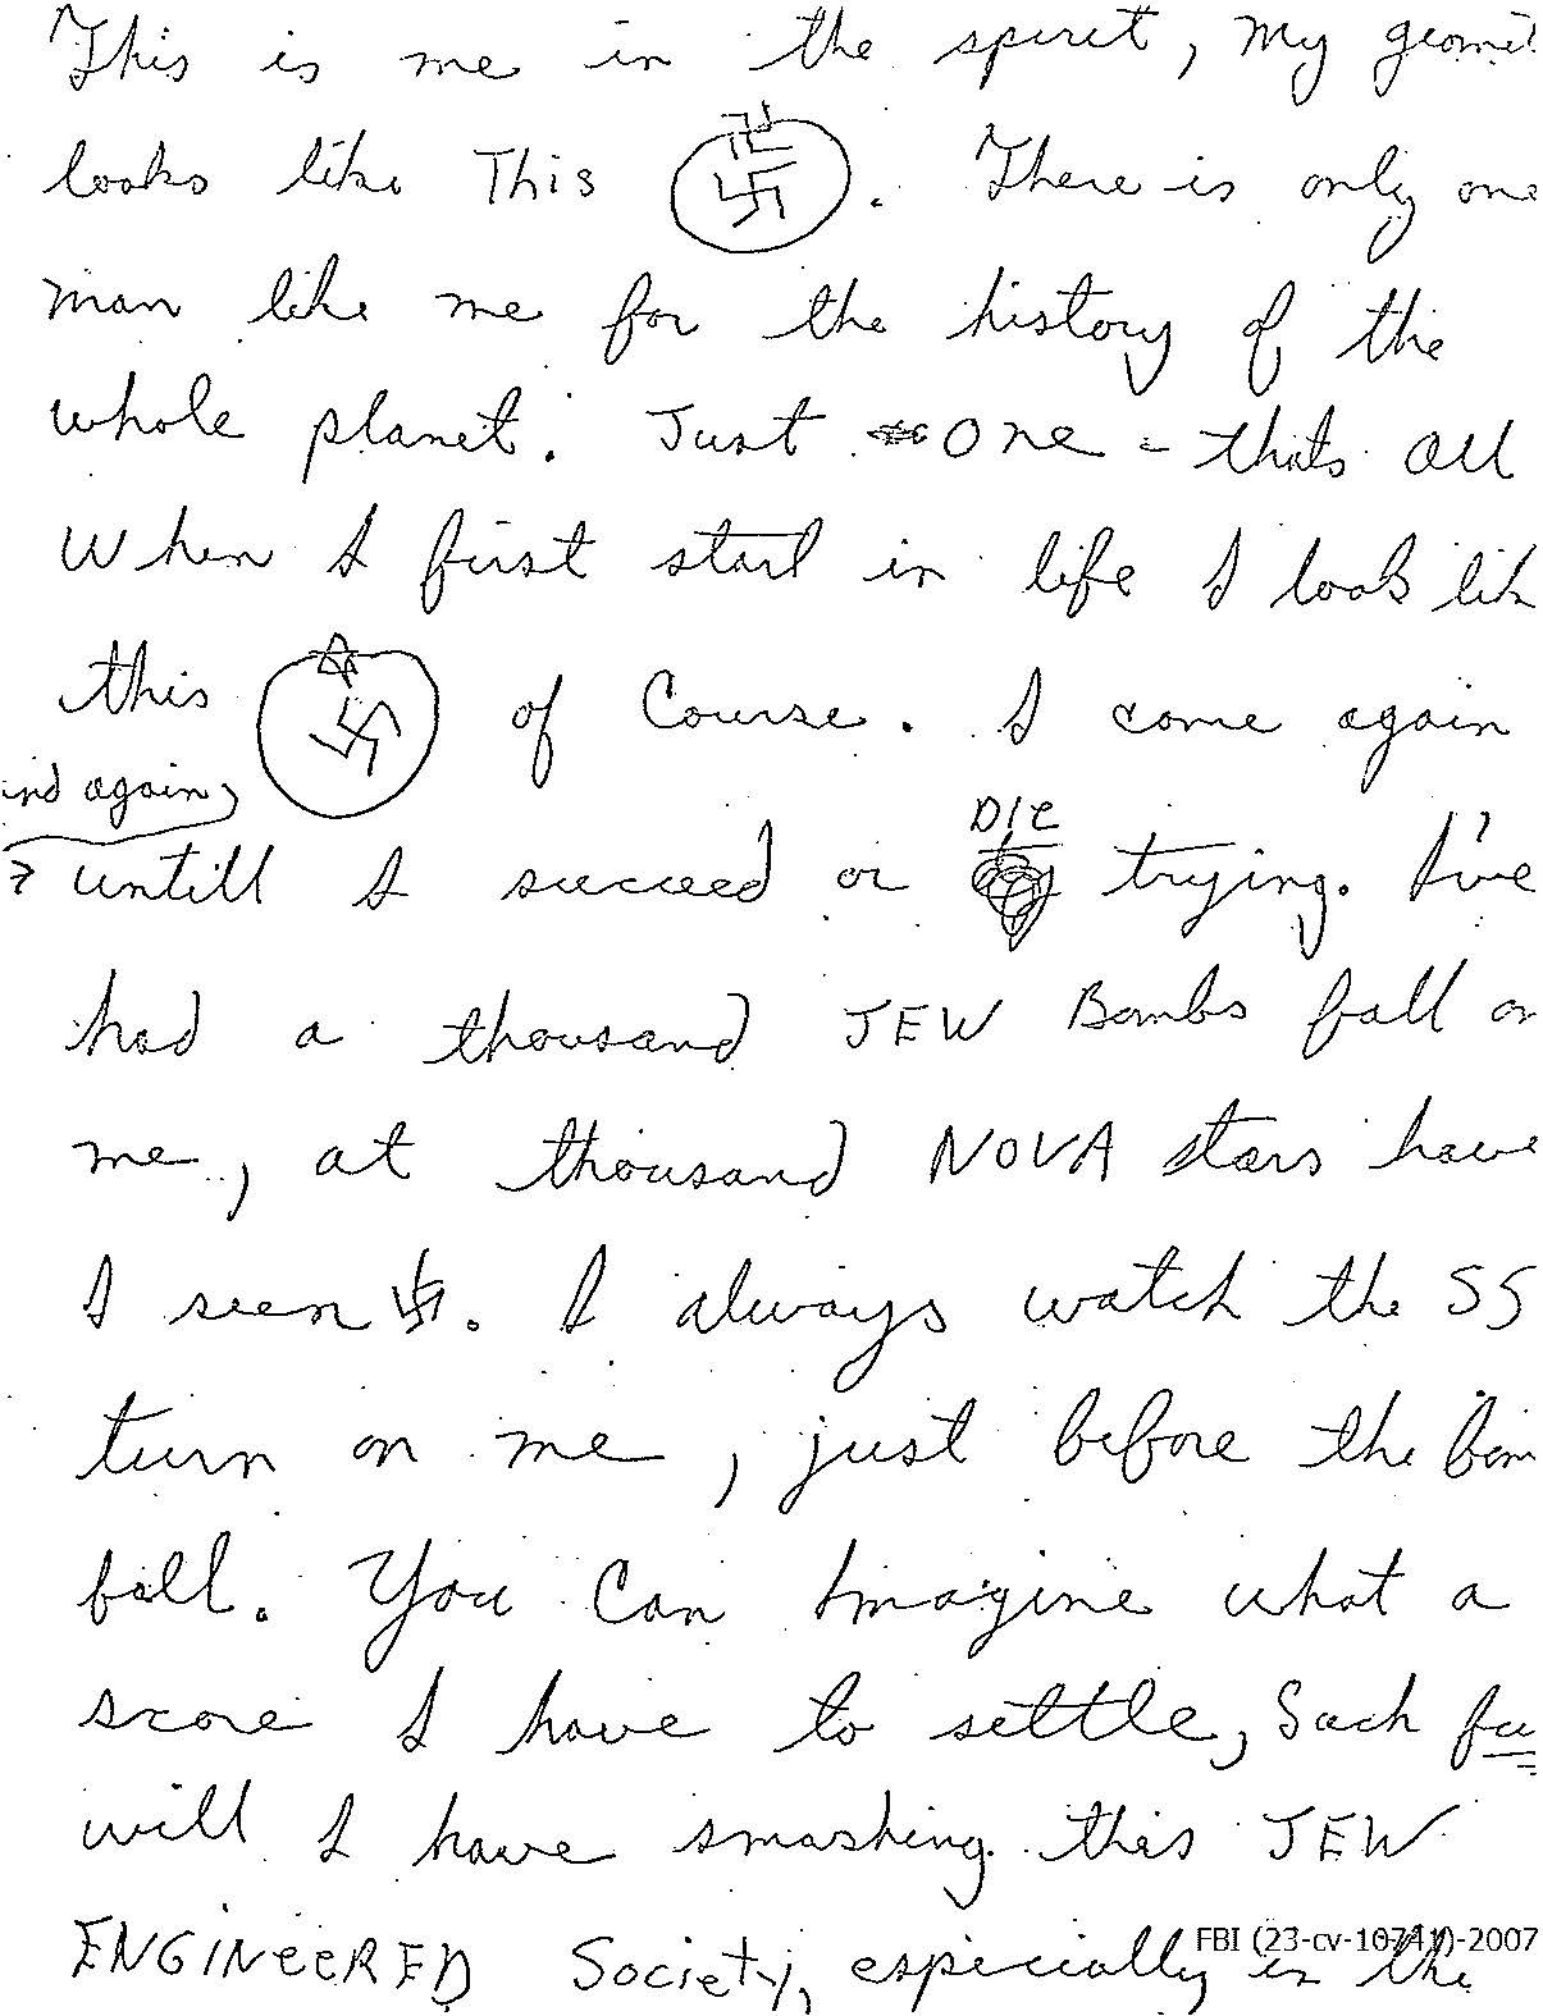 This is me in the spiret, My geomet
looks like This 卐. There is only one
man like me for the history of the
whole planet. Just one - thats all
When I first start in life I look lik
this 卐 of Course. I come again
and again
untill I succeed or DIE trying. I've
had a thousand JEW Bombs fall on
me, at thousand NOVA stars have
I seen 卐. I always watch the SS
turn on me, just before the bom
fall. You Can Imagine what a
score I have to settle, Such fu
will I have smashing this JEW
ENGINEERED Society, especially in the
FBI (23-cv-10741)-2007